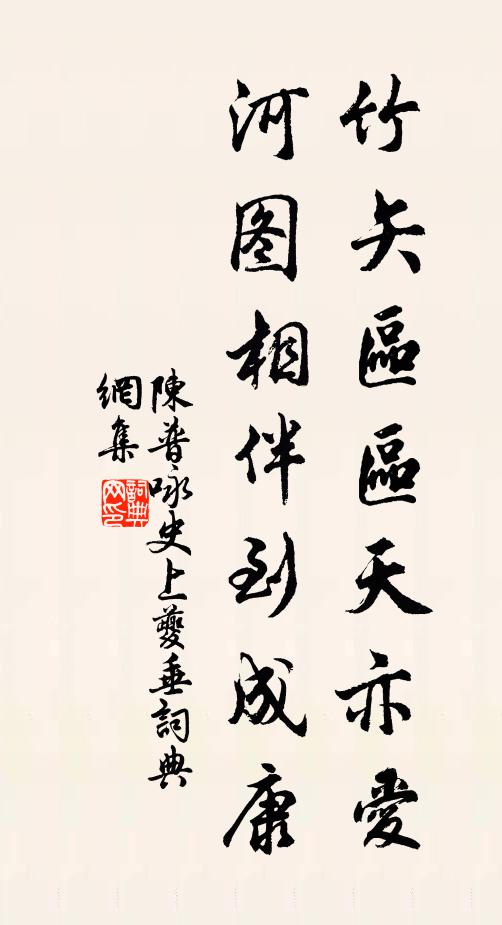 竹矢區區天亦愛
河图相伴到成康
陳普咏史上夔垂詞典
網集
詞典
网印